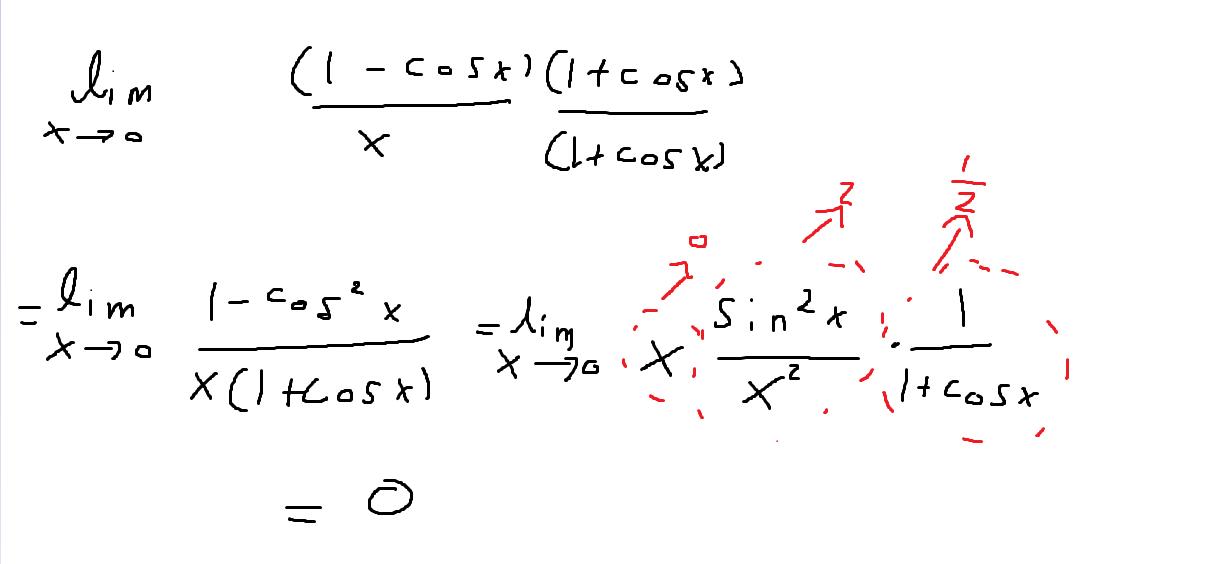 lim x→0 (1 - cosx)/x (1+cosx)/(1+cosx)
0 2 1/2
= lim x→0 (1 - cos² x)/(x(1+cosx)) = lim x→0 x sin² x/x² · 1/(1+cosx)
= 0